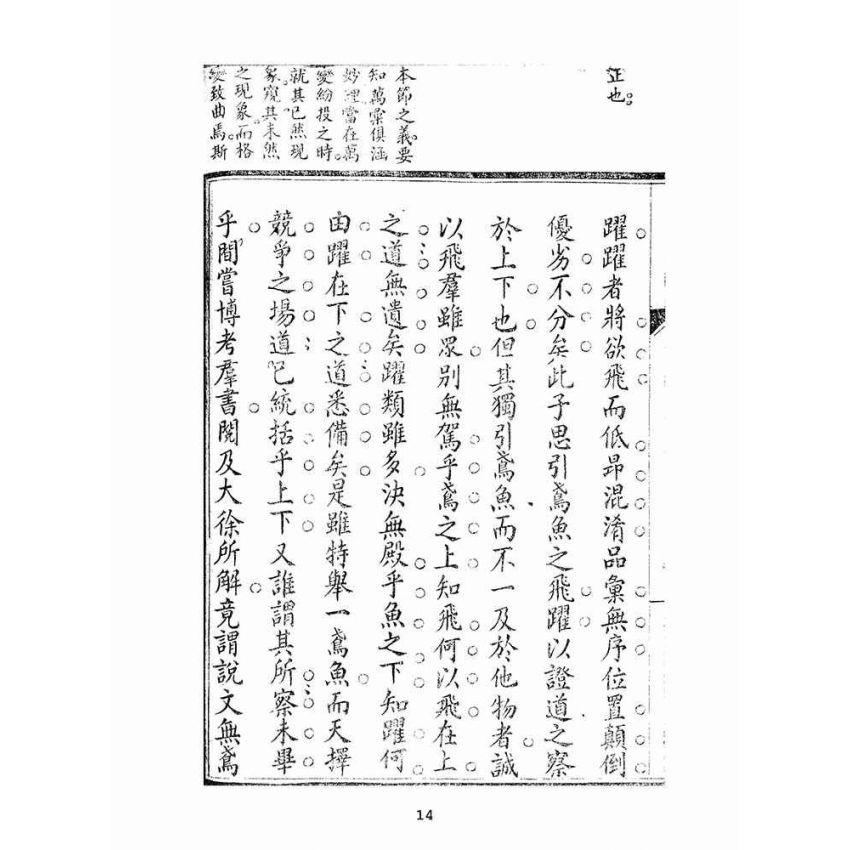 正也。
本節之義。要
知萬彙俱涵
妙理。當在萬
變紛投之時。
就其已然現
象。窺其未然
之現象。而格
變致曲焉。斯
躍躍者將欲飛而低昂混淆品彙無序位置顛倒
優劣不分矣此子思引鳶魚之飛躍以證道之察
於上下也但其獨引鳶魚而不一及於他物者誠
以飛羣雖眾別無駕乎鳶之上知飛何以飛在上
之道無遺矣躍類雖多決無殿乎魚之下知躍何
由躍在下之道悉備矣是雖特舉一鳶魚而天擇
競爭之場道已統括乎上下又誰謂其所察未畢
乎間嘗博考羣書閱及大徐所解竟謂說文無鳶
14